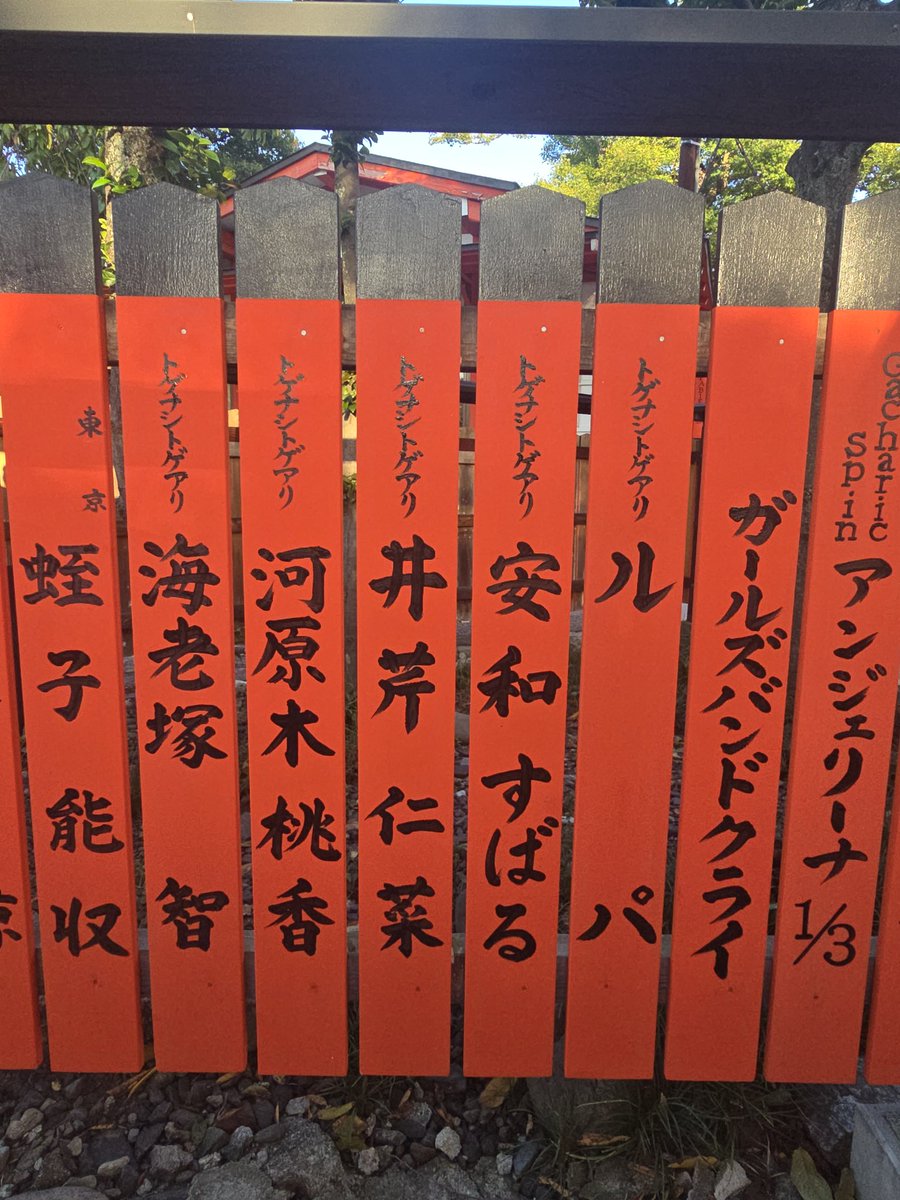 Gacharic
Spin
アンジェリーナ1/3
ガールズバンドクライ
トゲナシトゲアリ
ルパ
トゲナシトゲアリ
安和すばる
トゲナシトゲアリ
井芹仁菜
トゲナシトゲアリ
河原木桃香
トゲナシトゲアリ
海老塚智
東京
蛭子能収
京